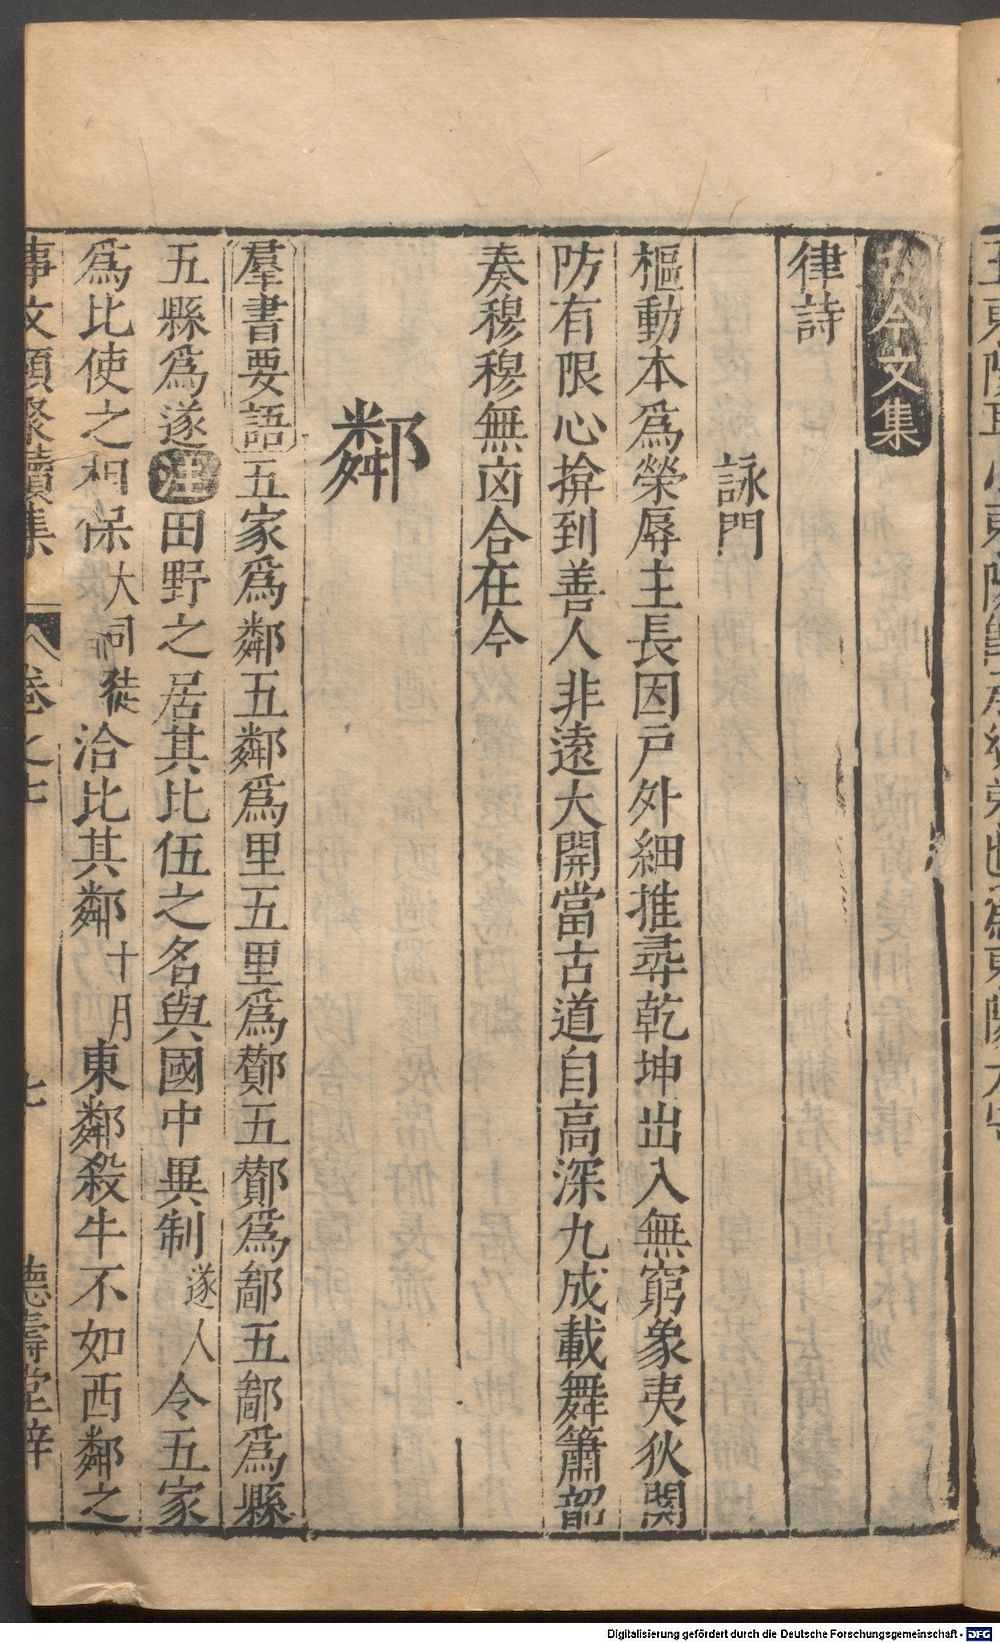 古今文集
律詩
詠門
樞動本為榮辱主長因戶外細推尋乾坤出入無窮象夷狄關
防有限心揜到善人非遠大開當古道自高深九成載舞簫韶
奏穆穆無凶合在今
鄰
羣書要語五家為鄰五鄰為里五里為酇五酇為鄙五鄙為縣
五縣為遂注田野之居其比伍之名與國中異制遂人令五家
為比使之相保大司徒洽比其鄰十月東鄰殺牛不如西鄰之
事文類聚續集 卷之七 七 德壽堂梓
Digitalisierung gefördert durch die Deutsche Forschungsgemeinschaft - DFG